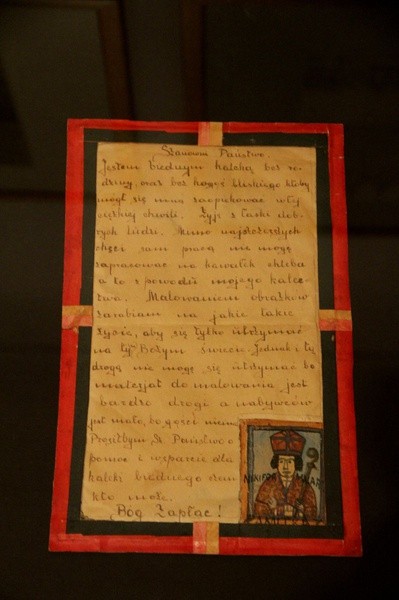 Szanowni Państwo
Jestem biednym kaleką bez ro-
dziny, oraz bez kogoś bliskiego któby
mógł się mną zaopiekować w tej
ciężkiej chwili. Żyję z łaski dob-
rych ludzi. Mimo najszczerszych
chęci sam pracą nie mogę
zapracować na kawałek chleba
a to z powodu mojego kalec-
twa. Malowaniem obrazków
zarabiam na jakie takie
życie, aby się tylko utrzymać
na tym Bożym świecie. Jednak i tą
drogą nie mogę się utrzymać bo
materjał do malowania jest
bardzo drogi a nabywców
jest mało, bo gości niema
Prosiłbym Sz. Państwo o
pomoc i wsparcie dla
kaleki biednego czem
kto może.
Bóg Zapłać!